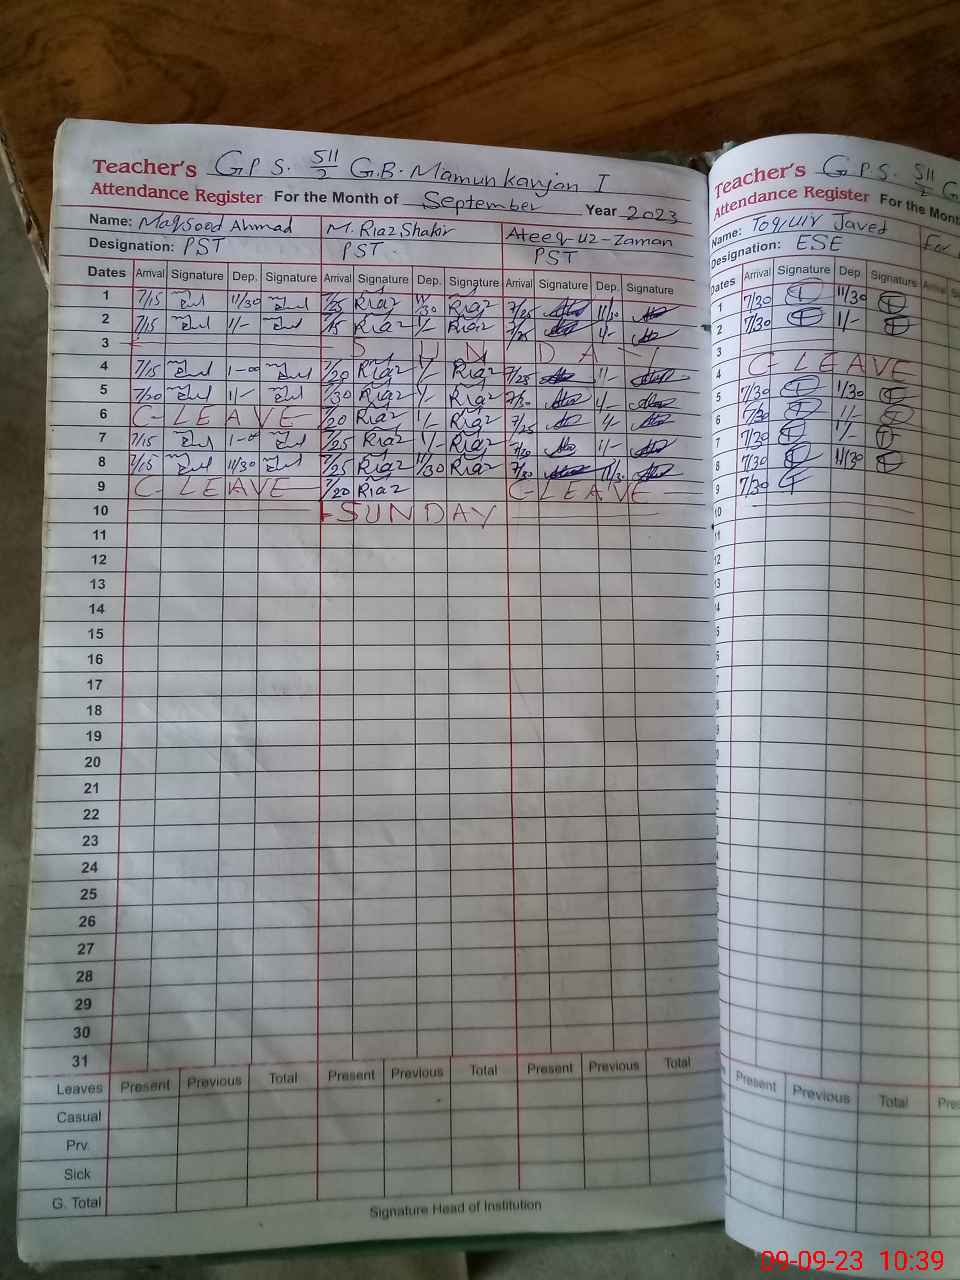 Teacher's G.P.S. 511/2 G.B. Mamunkanjan I
Attendance Register For the Month of September Year 2023
Name: Maqsood Ahmad M. Riaz Shakir Ateeq-uz-Zaman
Designation: PST PST PST
Dates Arrival Signature Dep. Signature Arrival Signature Dep. Signature Arrival Signature Dep. Signature
1 7/15 11/30 7/25 Riaz 11/30 Riaz 7/25 11/30
2 7/15 1/- 7/15 Riaz 1/- Riaz 7/25 1/-
3 SUNDAY
4 7/15 1-00 7/20 Riaz 1/- Riaz 7/25 1/-
5 7/20 1/- 7/30 Riaz 1/- Riaz 7/30 1/-
6 C-LEAVE 7/20 Riaz 1/- Riaz 7/25 1/-
7 7/15 1-00 7/25 Riaz 1/- Riaz 7/20 1/-
8 7/15 11/30 7/25 Riaz 11/30 Riaz 7/30 11/30
9 C-LEAVE 7/20 Riaz C-LEAVE
10 SUNDAY
11
12
13
14
15
16
17
18
19
20
21
22
23
24
25
26
27
28
29
30
31
Leaves Present Previous Total Present Previous Total Present Previous Total
Casual
Prv.
Sick
G. Total
Signature Head of Institution
Teacher's G.P.S. 511/2 G
Attendance Register For the Mont
Name: Toquir Javed For
Designation: ESE
Dates Arrival Signature Dep. Signature Arrival
1 7/30 11/30
2 7/30 1/-
3
4 C-LEAVE
5 7/30 11/30
6 7/30 1/-
7 7/30 1/-
8 7/30 11/30
9 7/30
10
11
12
13
Present Previous Total Pres
09-09-23 10:39